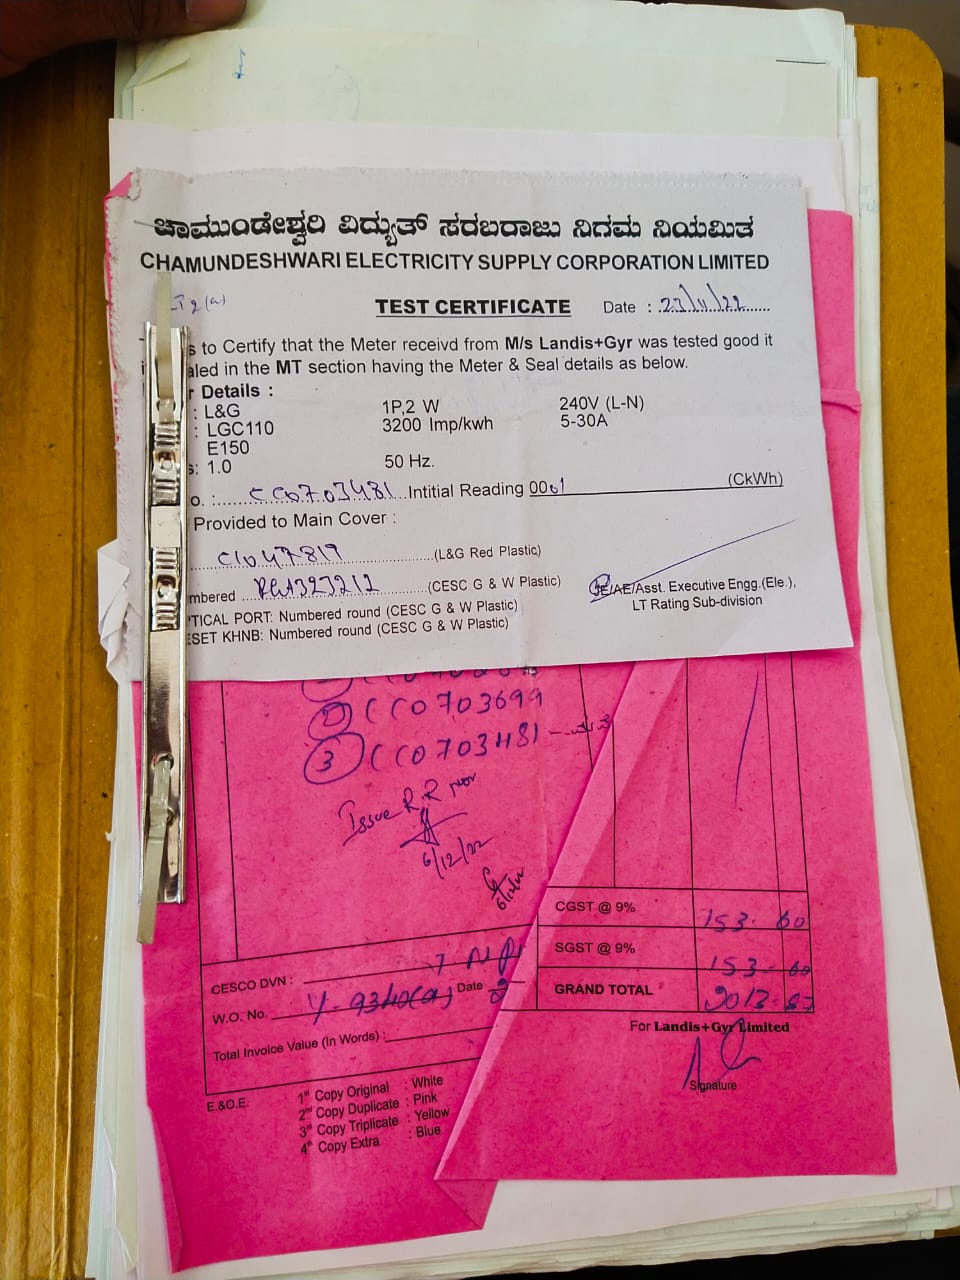 ಚಾಮುಂಡೇಶ್ವರಿ ವಿದ್ಯುತ್ ಸರಬರಾಜು ನಿಗಮ ನಿಯಮಿತ
CHAMUNDESHWARI ELECTRICITY SUPPLY CORPORATION LIMITED
2(a)
TEST CERTIFICATE Date : 23/11/22
s to Certify that the Meter receivd from M/s Landis+Gyr was tested good it
aled in the MT section having the Meter & Seal details as below.
r Details :
: L&G 1P,2 W 240V (L-N)
: LGC110 3200 Imp/kwh 5-30A
E150
s: 1.0 50 Hz.
o. : CC0703481 Intitial Reading 0001 (CkWh)
Provided to Main Cover :
C1047819 (L&G Red Plastic)
mbered (CESC G & W Plastic)
JE/AE/Asst. Executive Engg.(Ele.),
LT Rating Sub-division
TICAL PORT: Numbered round (CESC G & W Plastic)
ESET KHNB: Numbered round (CESC G & W Plastic)
2 CC0703699
3 CC0703481
Issue R.R
6/12/22
CGST @ 9% 153. 60
SGST @ 9% 153- 60
GRAND TOTAL 2013-
CESCO DVN :
W.O. No. Date
Total Invoice Value (In Words) :
For Landis+Gyr Limited
Signature
E.&O.E.
1st Copy Original : White
2nd Copy Duplicate : Pink
3rd Copy Triplicate : Yellow
4th Copy Extra : Blue